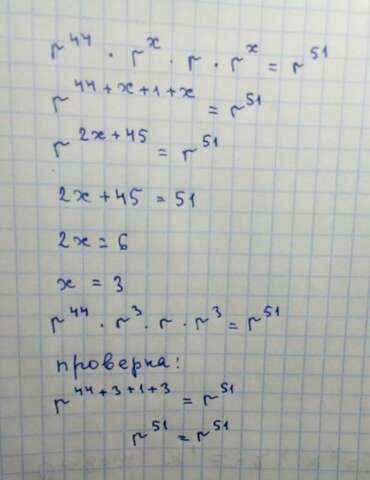 r⁴⁴ · rˣ · r · rˣ = r⁵¹
r⁴⁴⁺ˣ⁺¹⁺ˣ = r⁵¹
r²ˣ⁺⁴⁵ = r⁵¹
2x + 45 = 51
2x = 6
x = 3
r⁴⁴ · r³ · r · r³ = r⁵¹
проверка:
r⁴⁴⁺³⁺¹⁺³ = r⁵¹
r⁵¹ = r⁵¹